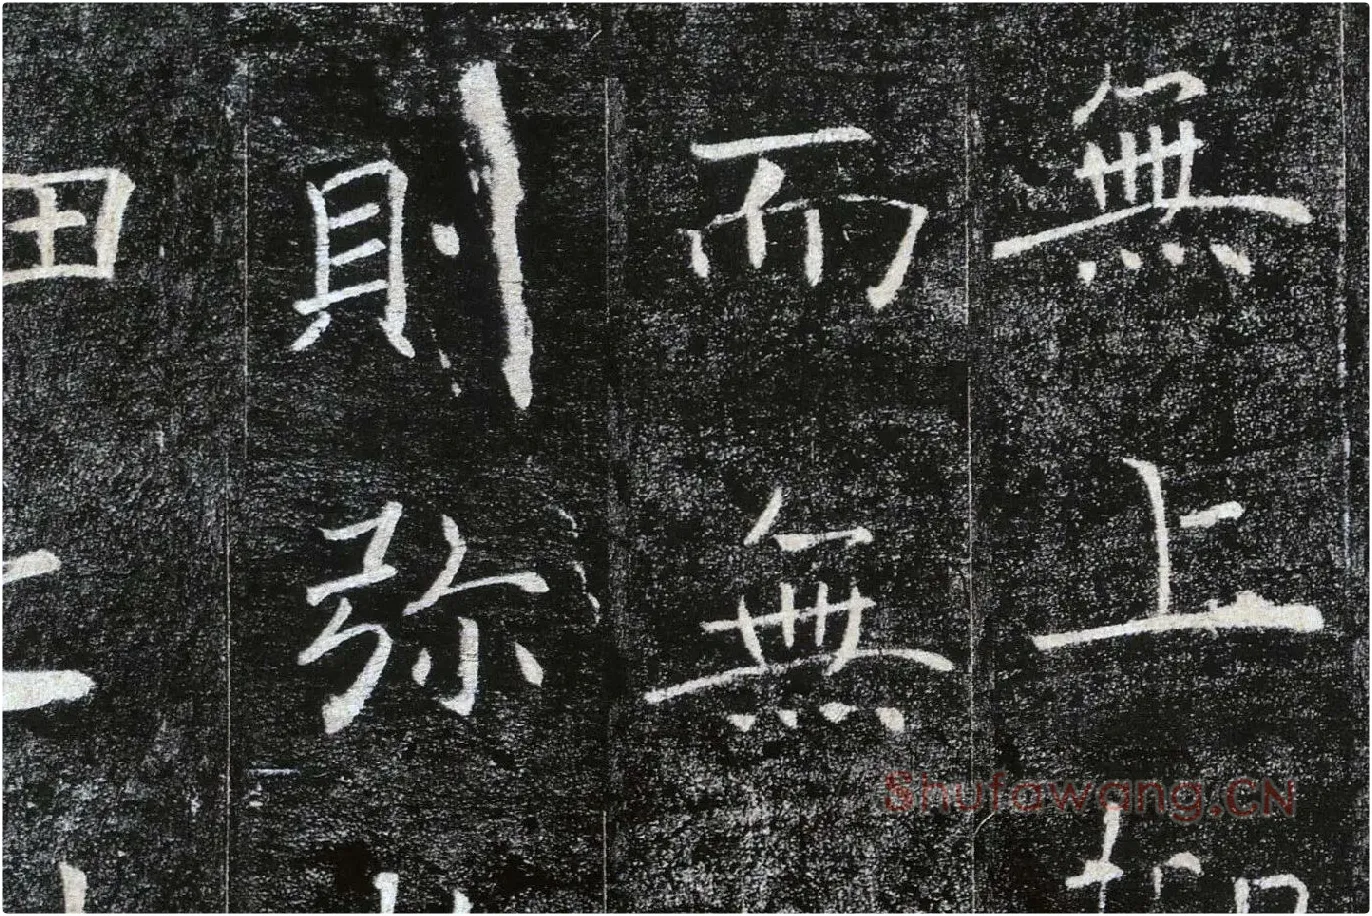 無上
而無
則弥
Shufawang.CN